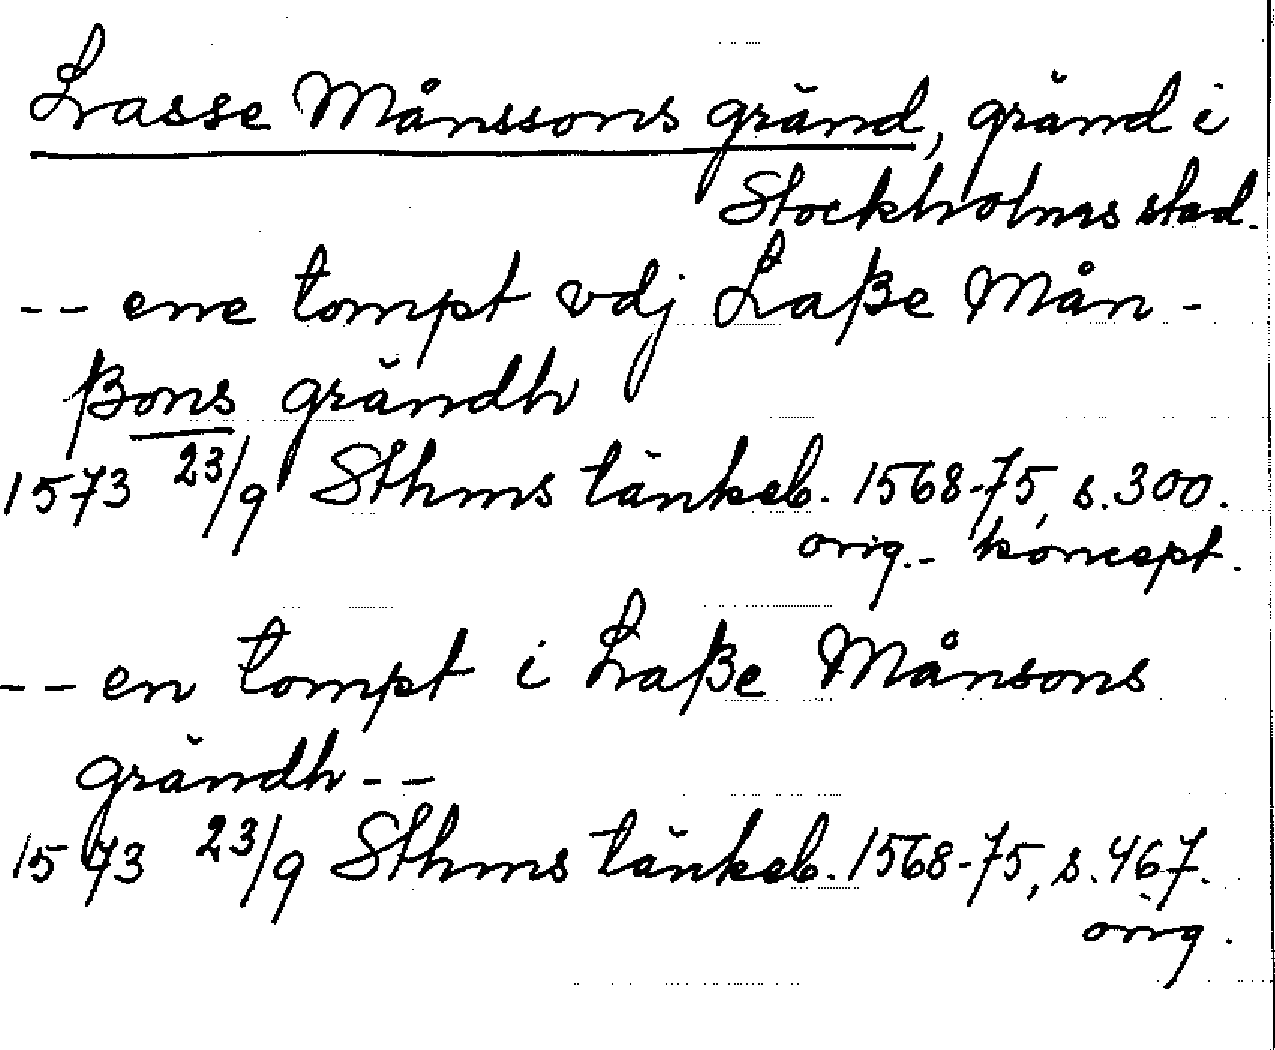 Lasse Månssons gränd, gränd i
Stockholms stad.
-- ene tompt vdj Laße Mån-
ßons grändh
1573 23/9 Sthms tänkeb. 1568-75, s. 300.
orig.- koncept.
-- en tompt i Laße Månsons
grändh --
1573 23/9 Sthms tänkeb. 1568-75, s. 467.
orig.